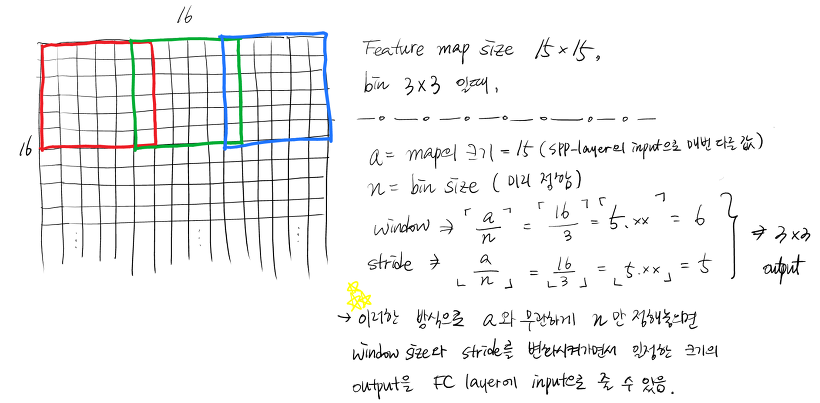 16
16
Feature map size 15×15,
bin 3×3 일때,
a = map의 크기 = 15 (SPP-layer의 input으로 매번 다른 값)
n = bin size (미리 정함)
window ⇒ ⌈a/n⌉ = ⌈16/3⌉ = ⌈5.xx⌉ = 6
stride ⇒ ⌊a/n⌋ = ⌊16/3⌋ = ⌊5.xx⌋ = 5
⇒ 3×3
output
→ 이러한 방식으로 a와 무관하게 n만 정해놓으면
window size와 stride를 변화시켜가면서 일정한 크기의
output을 FC layer에 input으로 줄 수 있음.